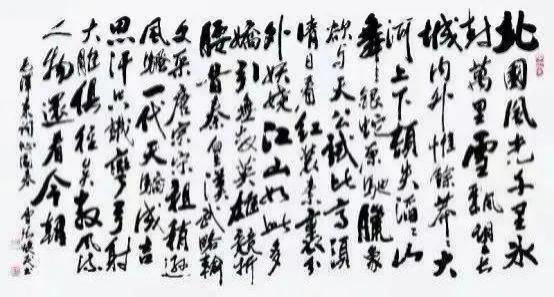 北國風光千里冰
封萬里雪飄望長
城內外惟餘莽〻大
河上下頓失滔〻山
舞銀蛇原馳臘象
欲與天公試比高須
晴日看紅裝素裹分
外妖嬈江山如此多
嬌引無數英雄競折
腰昔秦皇漢武略輸
文采唐宗宋祖稍遜
風騷一代天驕成吉
思汗只識彎弓射
大雕俱往矣數風流
人物還看今朝
毛澤東詞沁園春雪